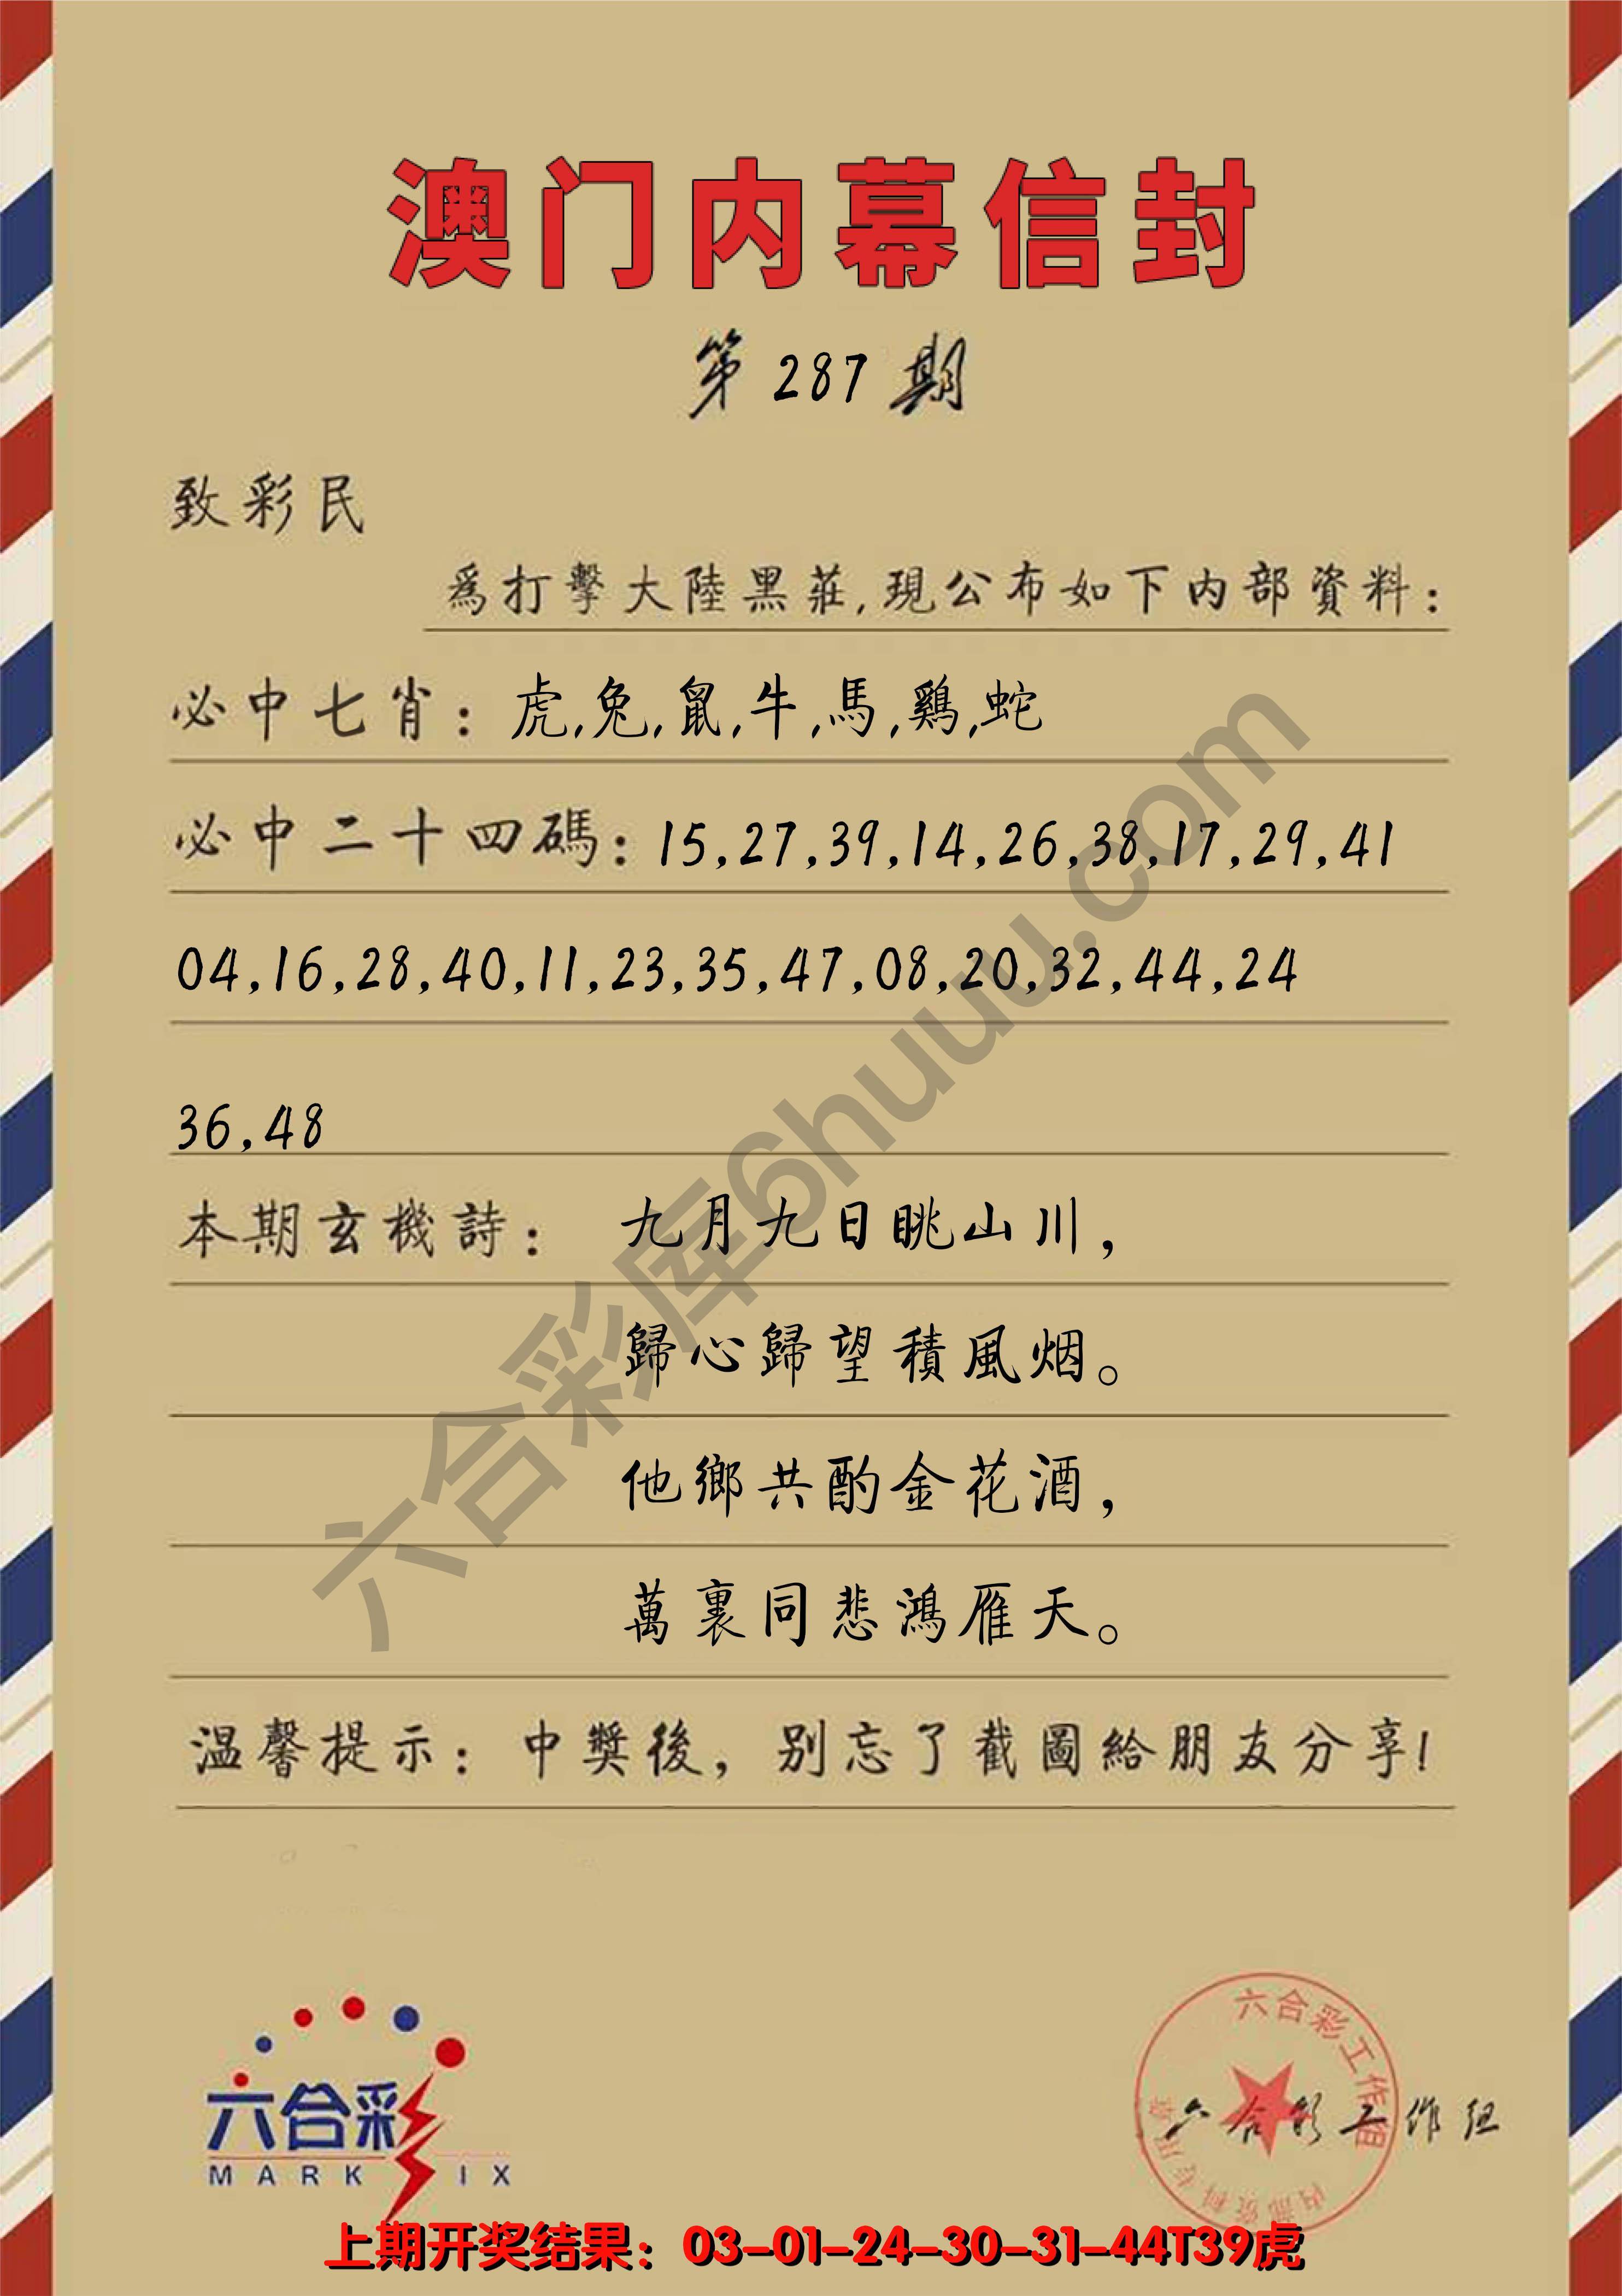 澳门内幕信封
第 287 期
致彩民
爲打擊大陸黑莊,現公布如下内部資料:
必中七肖: 虎,兔,鼠,牛,馬,鷄,蛇
必中二十四碼: 15,27,39,14,26,38,17,29,41
04,16,28,40,11,23,35,47,08,20,32,44,24
36,48
本期玄機詩: 九月九日眺山川,
歸心歸望積風烟。
他鄉共酌金花酒,
萬裏同悲鴻雁天。
温馨提示: 中獎後, 别忘了截圖給朋友分享!
六合彩库6huuu.com
六合彩
MARK SIX
六合彩工作组
内部资料专用章
六合彩工作组
上期开奖结果: 03-01-24-30-31-44T39虎